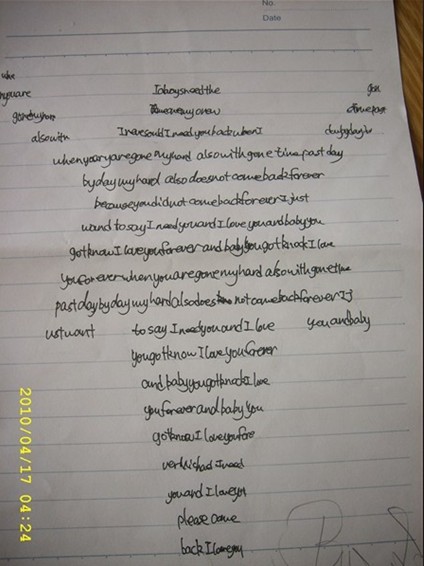 No.
Date
whe
nyouare I always need the gon
gonemyhear time
alsowith I never could I need you back when I daybyday
when your yaregone myhard alsowith gone time past day
by day my hard also does not come back forever
because you did not come back forever I just
wand to say I need you and I love you and baby you
gotknow I love you forever and baby you got knock I love
you forever when you are gone my hard also with gone the
past day by day my hard also does not come back forever I j
ust want to say I need you and I love you and baby
you got know I love you forever
and baby you got knock I love
you forever and baby you
gotknow I love you fore
ver I need
you and I love you
please come
back I love you
2010/04/17 04:24